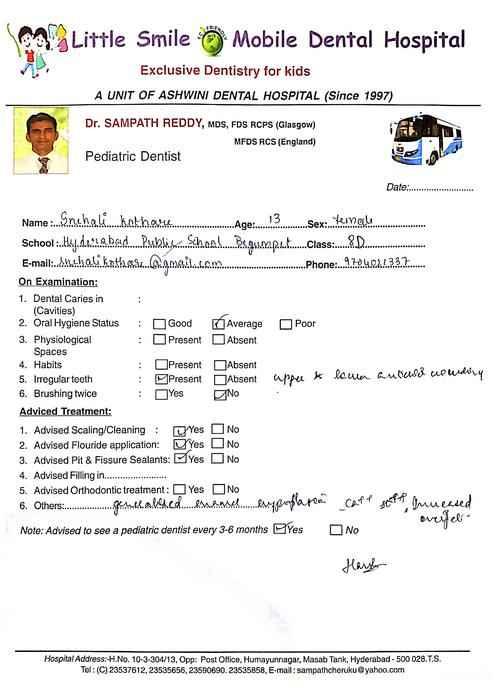 Little Smile Mobile Dental Hospital
Exclusive Dentistry for kids
A UNIT OF ASHWINI DENTAL HOSPITAL (Since 1997)
Dr. SAMPATH REDDY, MDS, FDS RCPS (Glasgow)
MFDS RCS (England)
Pediatric Dentist
Date:
Name: Snehali Kothare Age: 13 Sex: female
School: Hyderabad Public School Begumpet Class: 8D
E-mail: snehalikothare@gmail.com Phone:
On Examination:
1. Dental Caries in :
(Cavities)
2. Oral Hygiene Status : Good Average Poor
3. Physiological : Present Absent
Spaces
4. Habits : Present Absent
5. Irregular teeth : Present Absent upper & lower
6. Brushing twice : Yes No
Adviced Treatment:
1. Advised Scaling/Cleaning : Yes No
2. Advised Flouride application: Yes No
3. Advised Pit & Fissure Sealants: Yes No
4. Advised Filling in
5. Advised Orthodontic treatment : Yes No
6. Others: generalised enamel Increased
Note: Advised to see a pediatric dentist every 3-6 months Yes No
Hospital Address:-H.No. 10-3-304/13, Opp: Post Office, Humayunnagar, Masab Tank, Hyderabad - 500 028.T.S.
Tel : (C) 23537612, 23535656, 23590690. 23535858, E-mail : sampathcheruku@yahoo.com